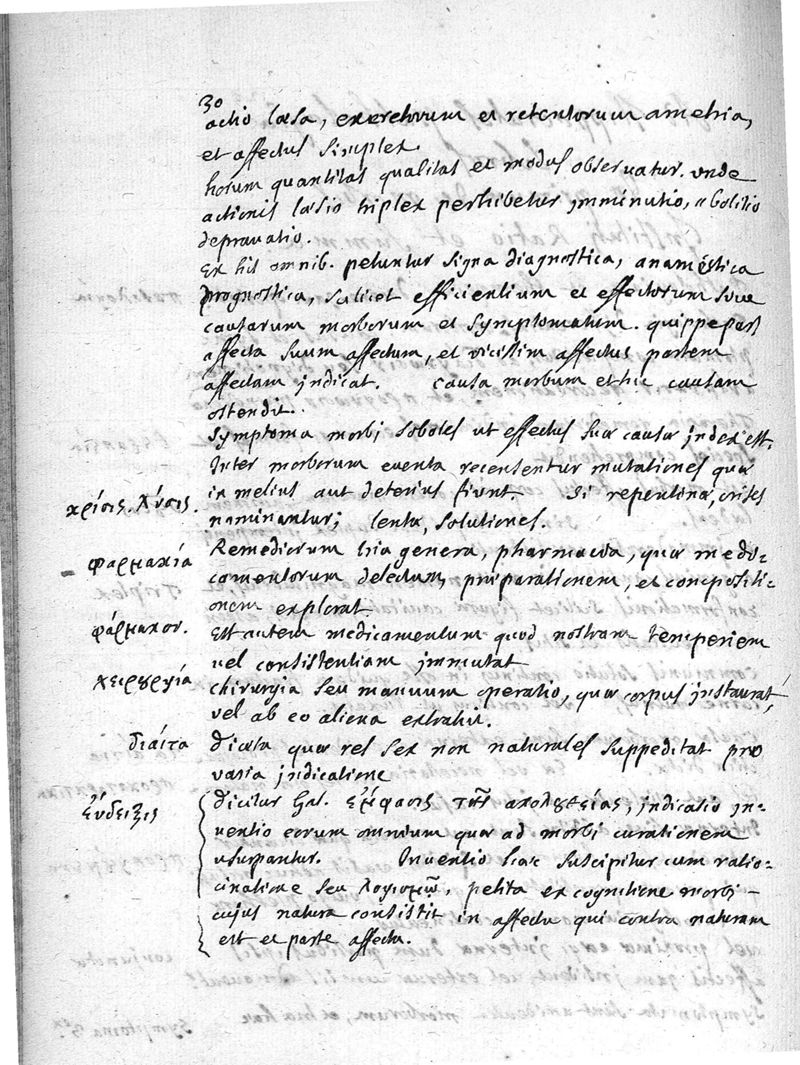 3o
actio læsa, excretorum et retentorum ametria,
et affectus simplex.
horum quantitas qualitas et modus observatur. unde
actionis læsio triplex perhibetur imminutio, abolitio
depravatio.
Ex his omnib. petuntur signa diagnostica, anamēstica
prognostica, scilicet efficientium et effectorum sive
causarum morborum et symptomatum. quippe pars
affecta suum affectum, et vicissim affectus partem
affectam indicat. causa morbum et hic causam
ostendit.
Symptoma morbi soboles ut effectus suæ causæ index est.
Inter morborum eventa recensentur mutationes quæ
κρίσις. λύσις. in melius aut deterius fiunt. Si repentinæ, crises
nominantur; lentæ, solutiones.
φαρμακία Remediorum tria genera, pharmacia, quæ medi-
camentorum delectum, præparationem, et compositi-
onem explorat.
φάρμακον. Est autem medicamentum quod nostram temperiem
vel consistentiam immutat
χειρουργία chirurgia seu manuum operatio, quæ corpus instaurat,
vel ab eo aliena extrahit.
διάιτα diæta quæ res sex non naturales suppeditat pro
varia indicatione
ἔνδειξις dicitur Gal. ἔμφασις τῆς ακολουθείας, indicatio in-
ventio eorum omnium quæ ad morbi curationem
usurpantur. Inventio hæc suscipitur cum ratio-
cinatione seu λογισμῷ, petita ex cognitione morbi
cujus natura consistit in affectu qui contra naturam
est et parte affecta.